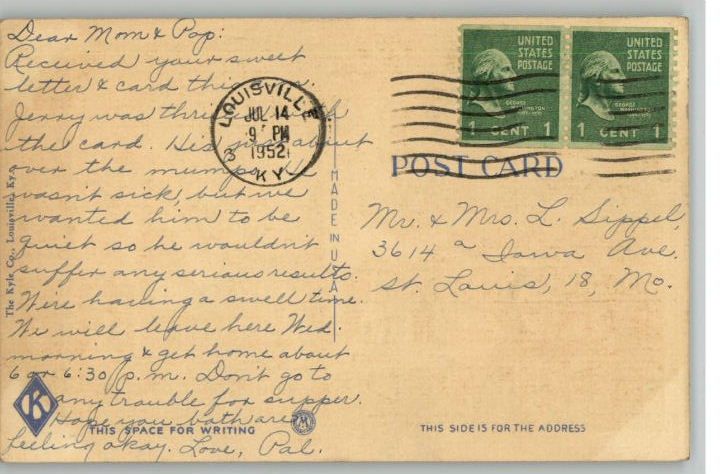 Dear Mom & Pop:
Received your sweet
letter & card this
Jerry was
the card. He's just about
over the mumps. He
wasn't sick, but we
wanted him to be
quiet so he wouldn't
suffer any serious results.
We're having a swell time.
We will leave here Wed.
morning & get home about
6 or 6:30 p.m. Don't go to
any trouble for supper.
Hope you both are
feeling okay. Love, Pal.
THIS SPACE FOR WRITING
K
The Kyle Co., Louisville, Ky.
MADE IN U.S.A.
LOUISVILLE
JUL 14
9 PM
1952
KY.
UNITED STATES POSTAGE
GEORGE WASHINGTON
1 CENT 1
UNITED STATES POSTAGE
GEORGE WASHINGTON
1 CENT 1
POST CARD
Mr. & Mrs. L. Sippel,
3614 a Iowa Ave.
St. Louis, 18, Mo.
THIS SIDE IS FOR THE ADDRESS